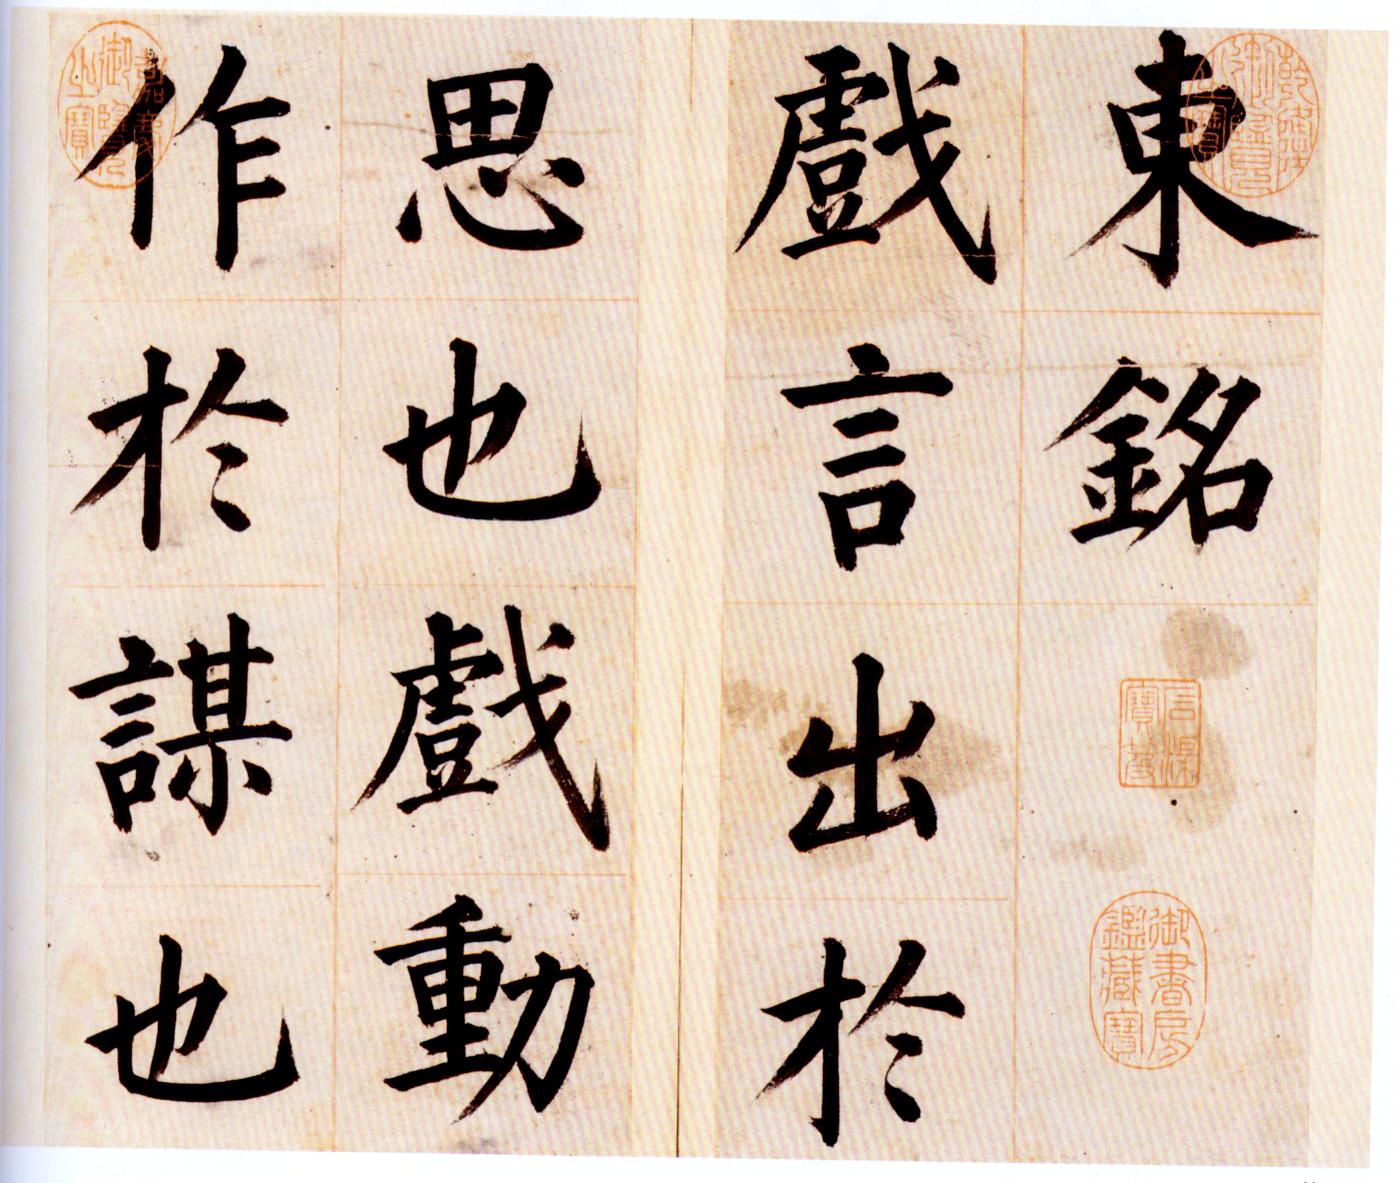 東銘
戲言出於
思也戲動
作於謀也
乾隆御覽之寶
信渼寶蕚
御書房鑑藏寶
嘉慶御覽之寶